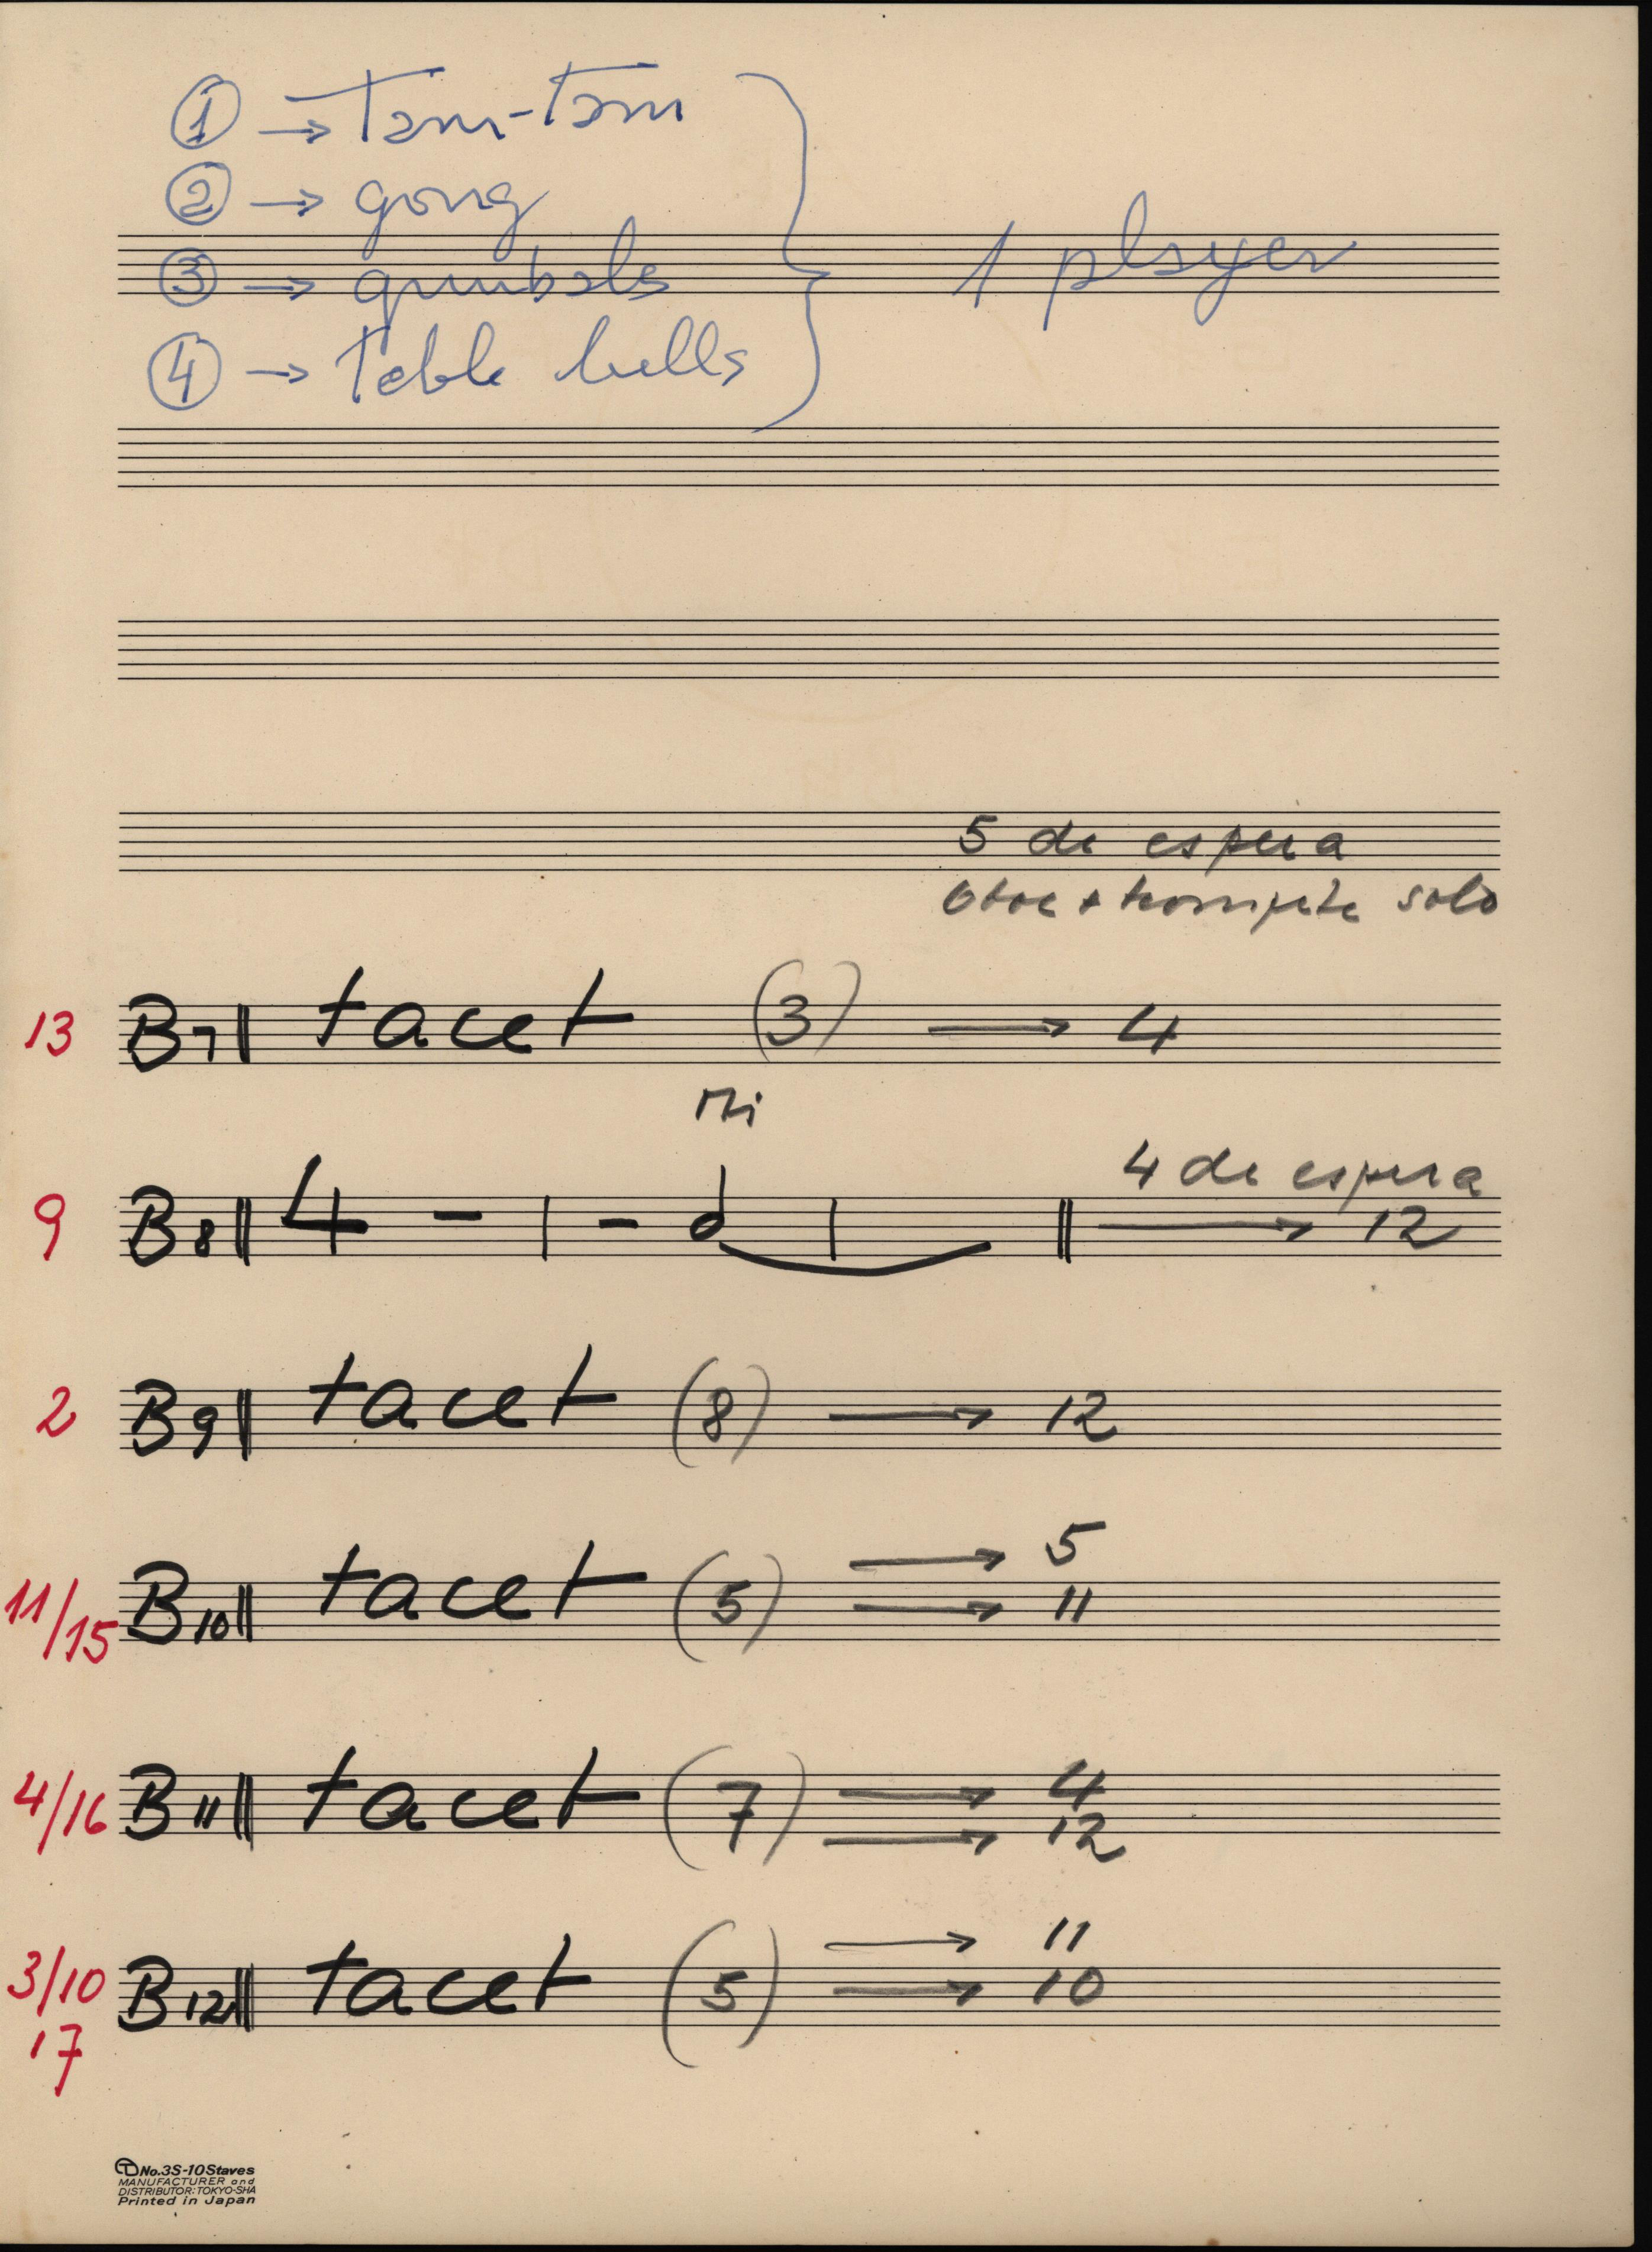 ① → Tam-tam
② → gong
③ → qumbals
④ → table bells
1 player
5 de espera
oboe + trompete solo
13 B7 tacet (3) → 4
Mi
4 de espera
9 B8 4 - - → 12
2 B9 tacet (8) → 12
11/15 B10 tacet (5) → 5
→ 11
4/16 B11 tacet (7) → 4
→ 12
3/10 B12 tacet (5) → 11
17 → 10
No.3S-10Staves
MANUFACTURER and
DISTRIBUTOR: TOKYO-SHA
Printed in Japan